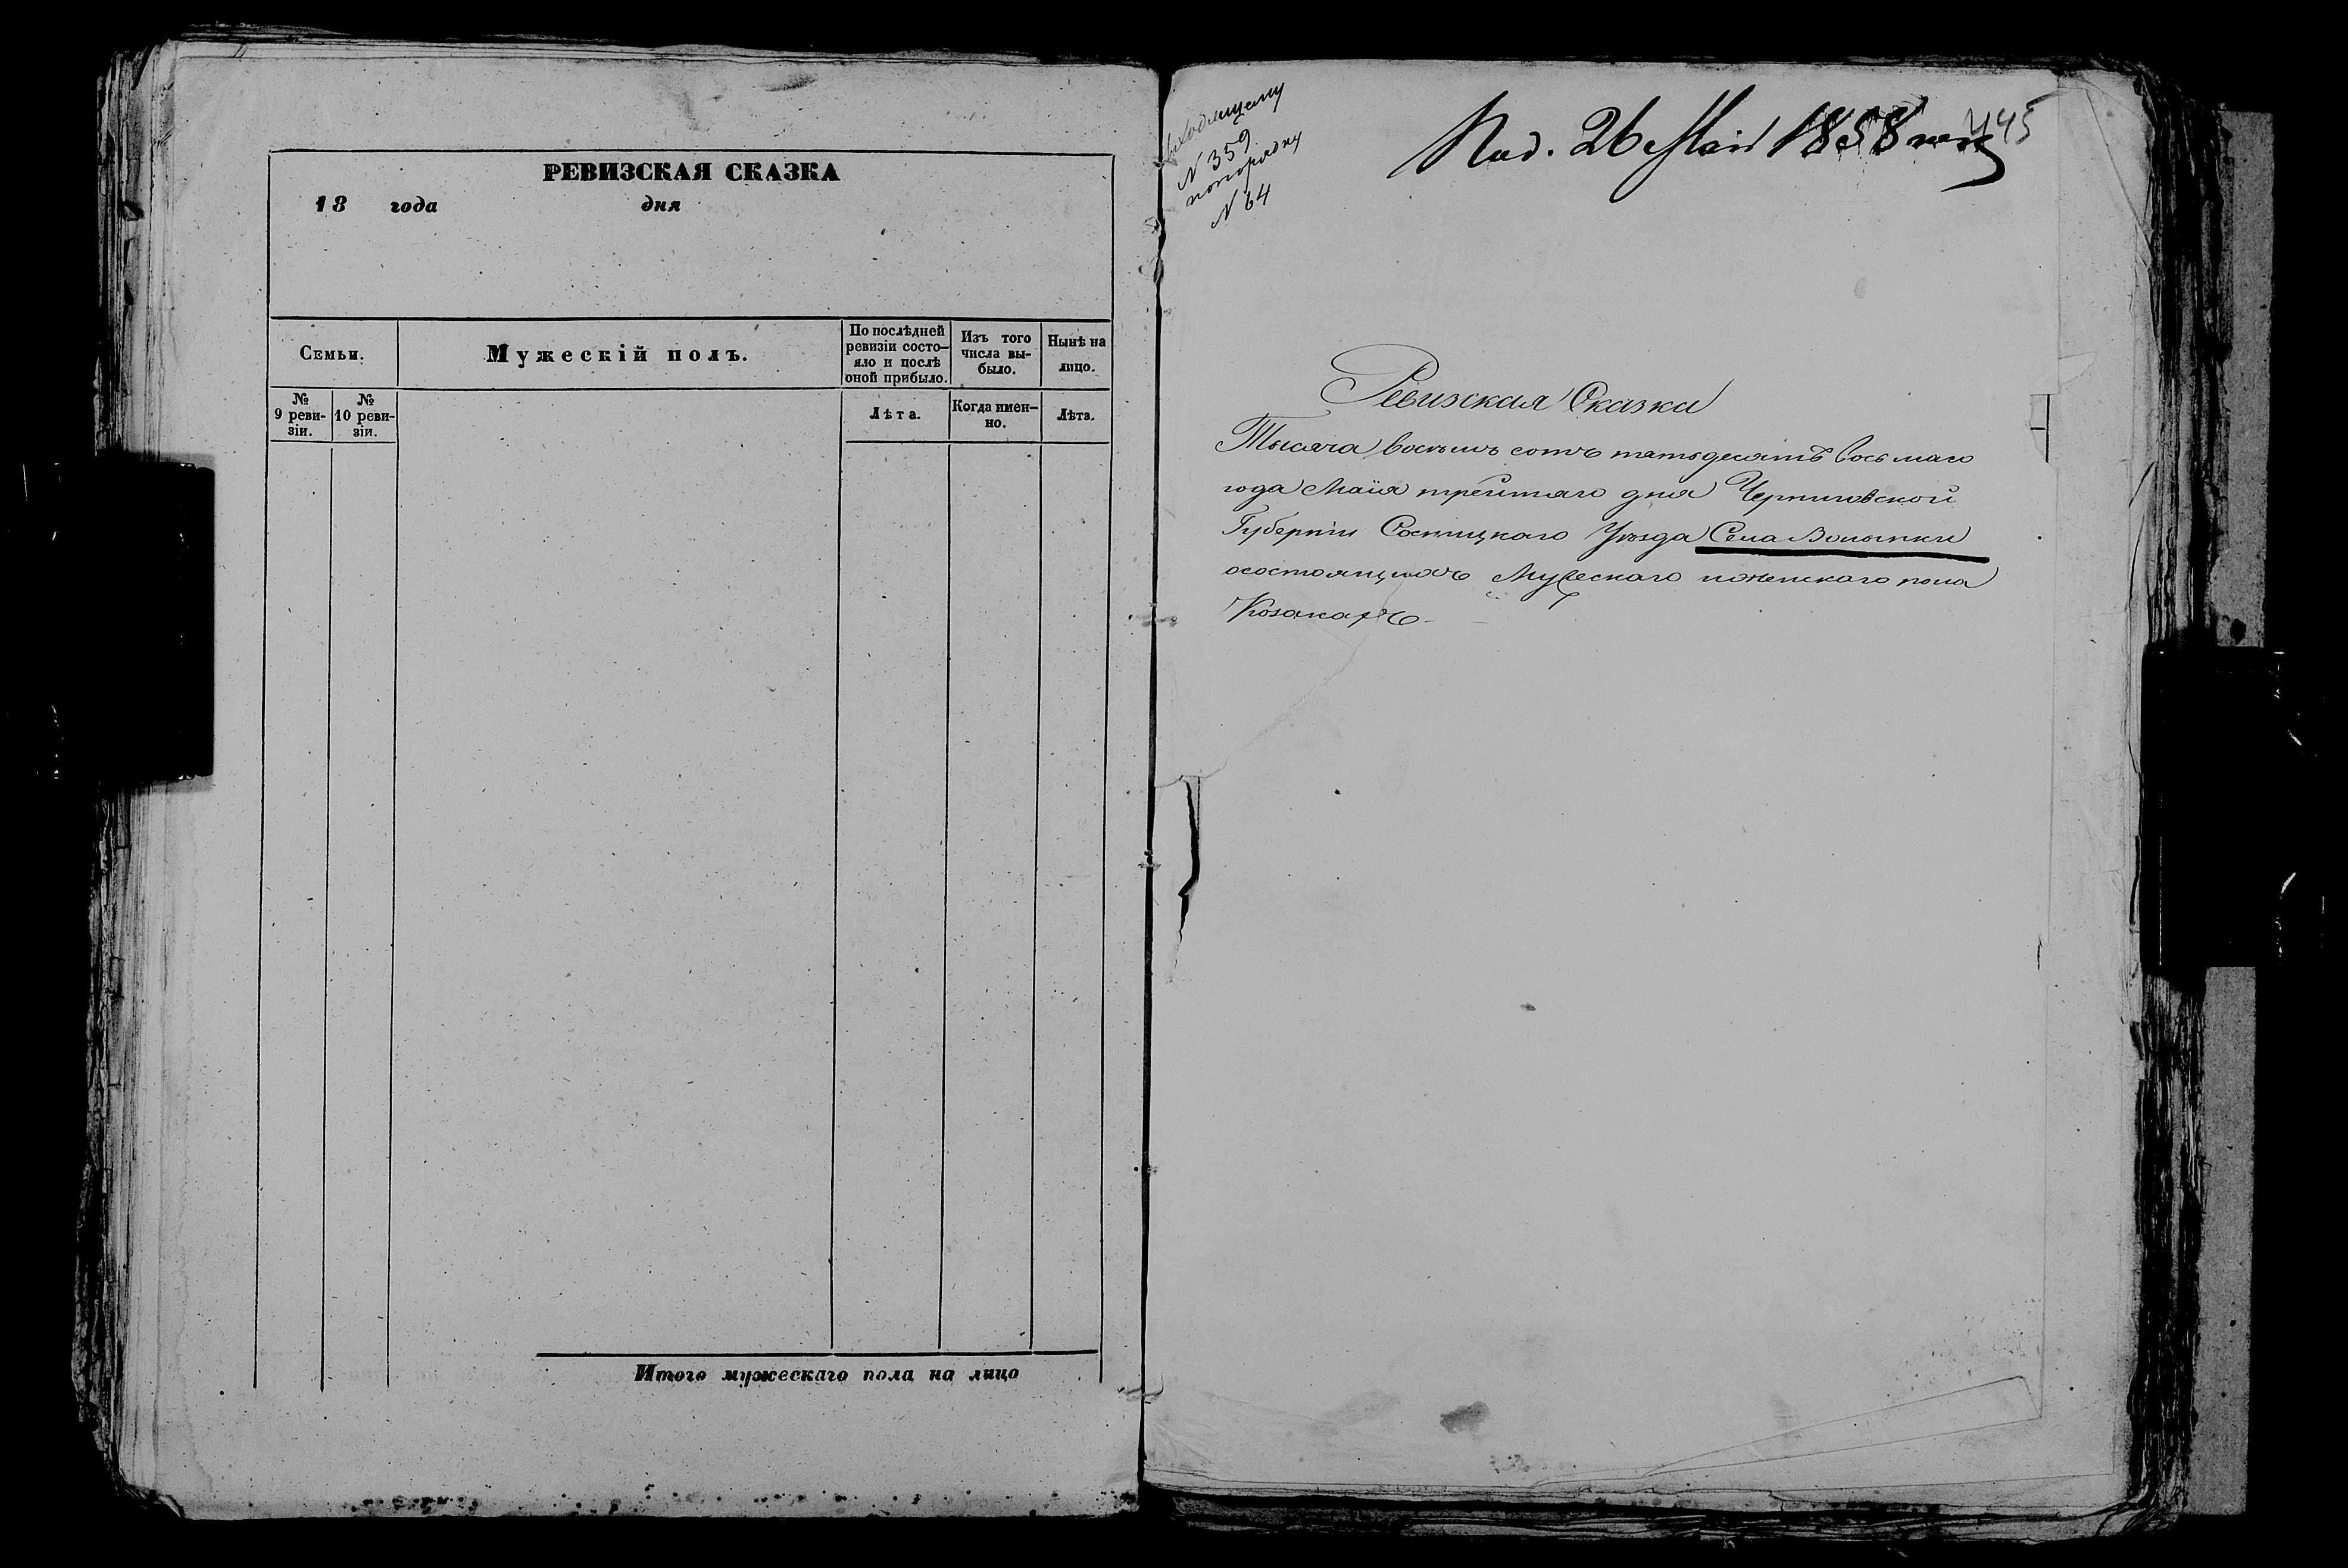 РЕВИЗСКАЯ СКАЗКА
18 года дня
Семьи.
Мужескій полъ.
По послѣдней
ревизіи состо-
яло и послѣ
оной прибыло.
Изъ того
числа вы-
было.
Нынѣ на
лицо.
№
9 реви-
зіи.
№
10 реви-
зіи.
Лѣта.
Когда имен-
но.
Лѣта.
Итого мужескаго пола на лицо
входящему
N 359
по порядку
N 64
Под. 26 Мая 1858 года
445
Ревизская Сказка
Тысяча восемь сотъ пятьдесятъ восьмаго
года Маія третяго дня Черниговской
Губерніи Сосницкаго Уѣзда Села Волынки
осостоящихъ Мужескаго иженскаго пола
Козакахъ